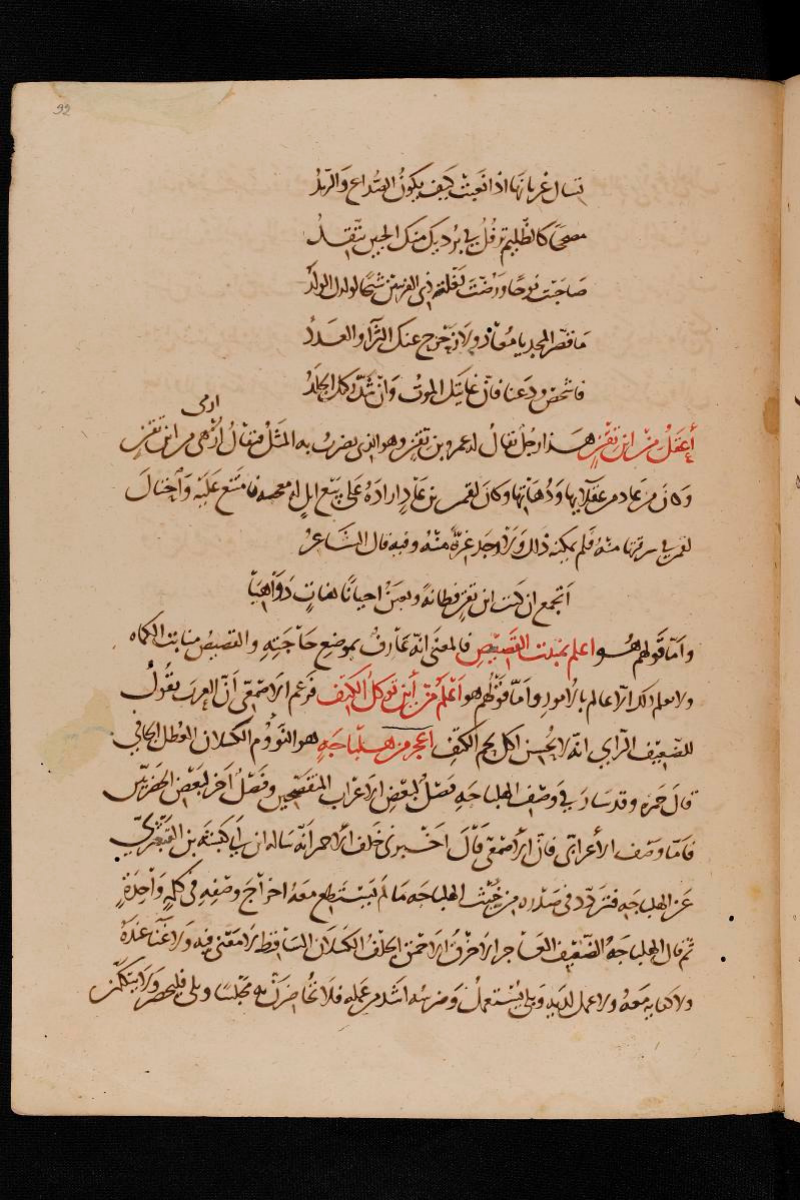 92
تسال غربانها اذا نعبت كيف يكون الصداع والرمد
مصححا كالظليم ترفل في برديك منك الجبين يتقد
صاحبت نوحا ورضت بغلة ذي القرنين شيخا لولدك الولد
ما قصر المجد يا معاذ ولا زحزح عنك الثرآ والعدد
فاشخص ودعنا فان غايتك الموت وان شد ركنك الجلد
ارمى
أعقل من ابن تقن هذا رجل يقال له عمرو بن تقن وهو الذي يضرب به المثل فيقال أرمى من ابن تقن
وكان من عاد من عقلايها ودهاتها وكان لقمن بن عاد اراده على بيع ابل له معجبه فامتنع عليه واحتال
لقمن في سرقتها منه فلم يمكنه ذلك ولا وجد غرة منه وفيه قال الشاعر
اتجمع ان كنت ابن تقن فطانة وتغبن احيانا هنات دواهيا
واما قولهم هو اعلم بمنبت القصيص فالمعنى انه عارف بموضع حاجته والقصيص منابت الكماه
ولا يعلم ذلك الا عالم بالامور واما قولهم هو اعلم من أين توكل الكتف فزعم الاصمعي أن العرب تقول
للضعيف الراي انه لا يحسن اكل لحم الكتف اعجز من هلباجة هو النؤوم الكسلان العطل الجافي
قال حمزه وقد سار في وصف الهلباجه فصل لبعض الاعراب المتفصحين وفصل آخر لبعض الحضريين
فاما وصف الأعرابي فان الأصمعي قال اخبرني خلف الاحمر انه سال ابن ابي كبشة بن القبعثري
عن الهلباجه فتردد في صدره من خبث الهلباجه ما لم يستطع معه اخراج وصفه في كلمة واحدة
ثم قال الهلباجة الضعيف العاجز الاخرق الاحمق الجلف الكسلان الساقط لا معنى فيه ولا غنآ عنده
ولا كفاية معه ولا عمل لديه وبلى يستعمل وضرسه اشد من عمله فلا تحاضرن به مجلسا وبلى فليحضر ولا يتكلمن